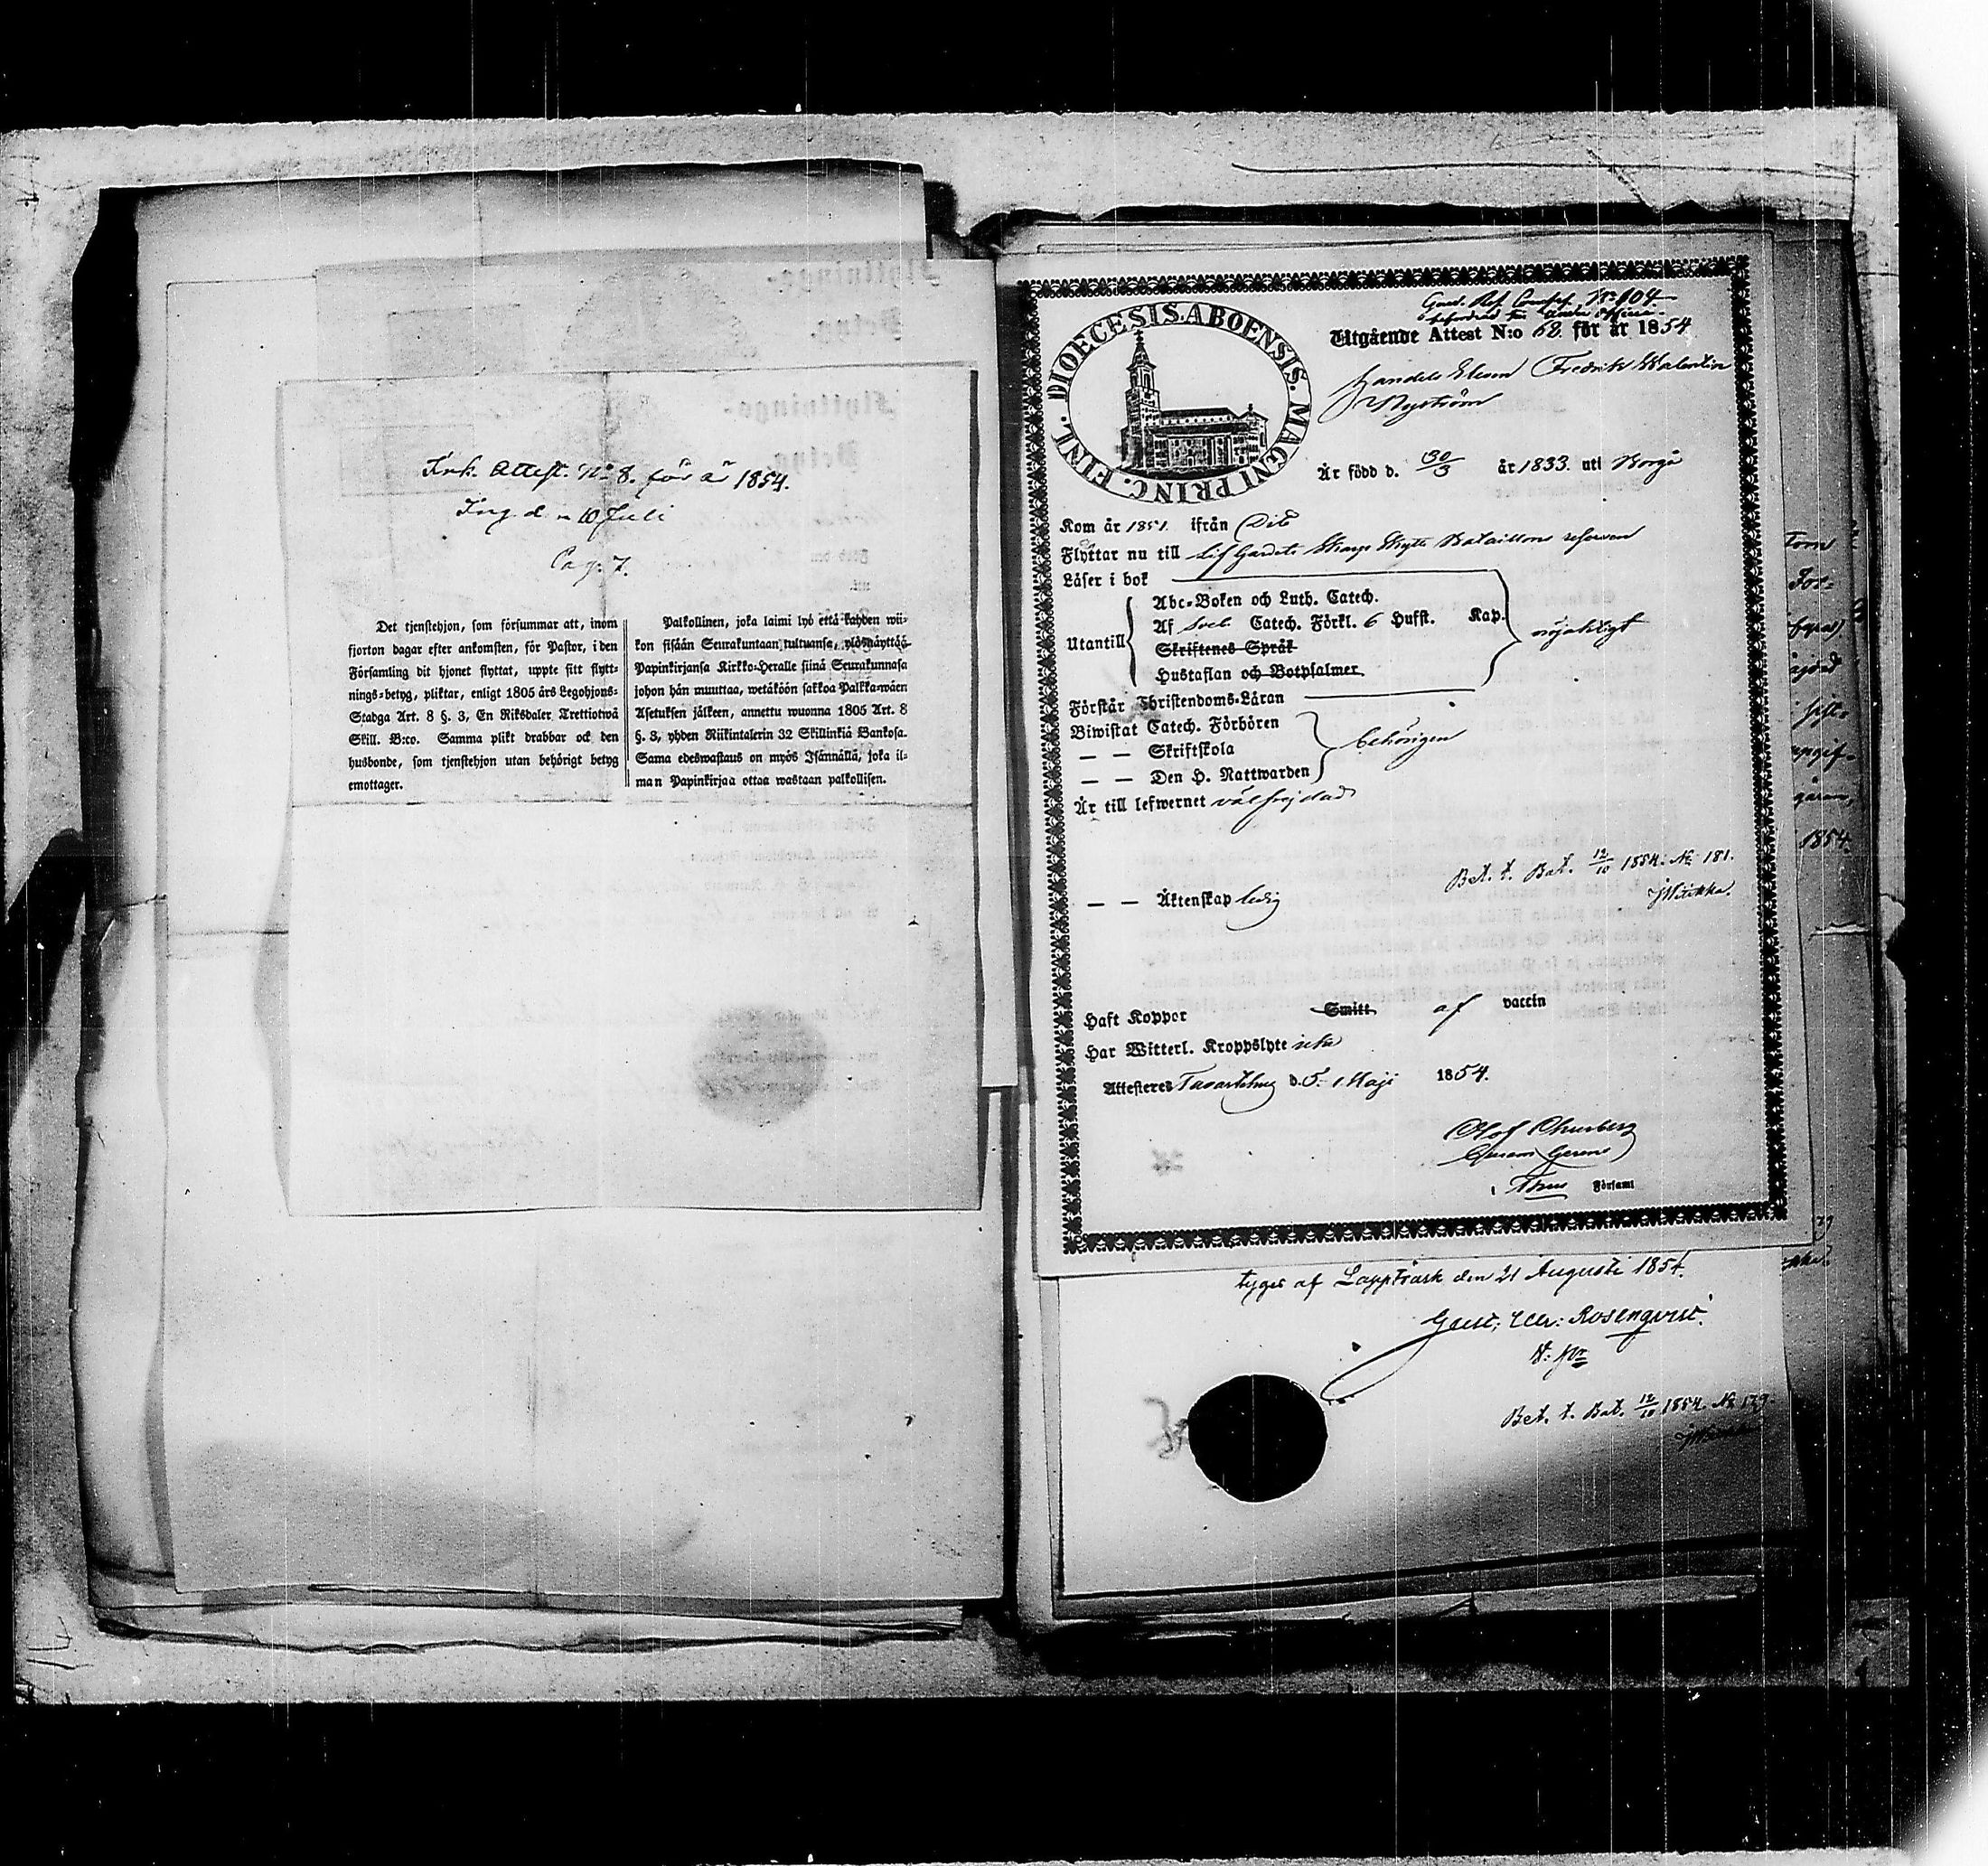 Ink. Attest. No 8. för år 1854.
Ing. d. 10 Juli
Pag. 7.
Det tjenstehjon, som försummar att, inom
fjorton dagar efter ankomsten, för Pastor, i den
Församling dit hjonet flyttat, uppte sitt flytt-
nings-betyg, pliktar, enligt 1805 års Legohjons-
Stadga Art. 8 §. 3, En Riksdaler Trettiotwå
Skill. B:co. Samma plikt drabbar ock den
husbonde, som tjenstehjon utan behörigt betyg
emottager.
Palkollinen, joka laimi lyö että kahden wii-
kon sisään Seurakuntaan tultuansa, ylösnäyttää
Papinkirjansa Kirkko-Heralle siinä Seurakunnasa
johon hän muuttaa, wetäköön sakkoa Palkka-wäen
Asetuksen jälkeen, annettu wuonna 1805 Art. 8
§. 3, yhden Riikintalerin 32 Skillinkiä Bankosa.
Sama edeswastaus on myös Isännällä, joka il-
man Papinkirjaa ottaa wastaan palkollisen.
DIOECESIS. ABOENSIS. MAGNI PRINC. FINL.
No 104
Utgående Attest N:o 62 för år 1854
Fredrik Walentin
Nyström
Är född d. 30/3 år 1833. uti Borgå
Kom år 1851 ifrån Dito
Flyttar nu till Lif Gardets Skarp Skytte Bataillons reserven
Läser i bok
Utantill
Abc-Boken och Luth. Catech.
Af Sveb Catech. Förkl. 6 Hufst. Kap.
Skriftenes Språk
Hustaflan och Botpsalmer.
nöjaktigt
Förstår Christendoms-Läran
Biwistat Catech. Förhören
— — Skriftskola
— — Den H. Nattwarden
behörigen
Är till lefwernet välfrejdad
Bet. t. Bat. 12/10 1854. No 181.
— — Äktenskap ledig
Haft Koppor Smitt af vaccin
Har Witterl. Kroppslyte icke
Attesteres Tavastehus d. 5 Maji 1854.
Olof
Församl
tyges af Lappträsk den 21 Augusti 1854.
Rosenqvist.
Bet. t. Bat. 12/10 1854. No 179.
1854.